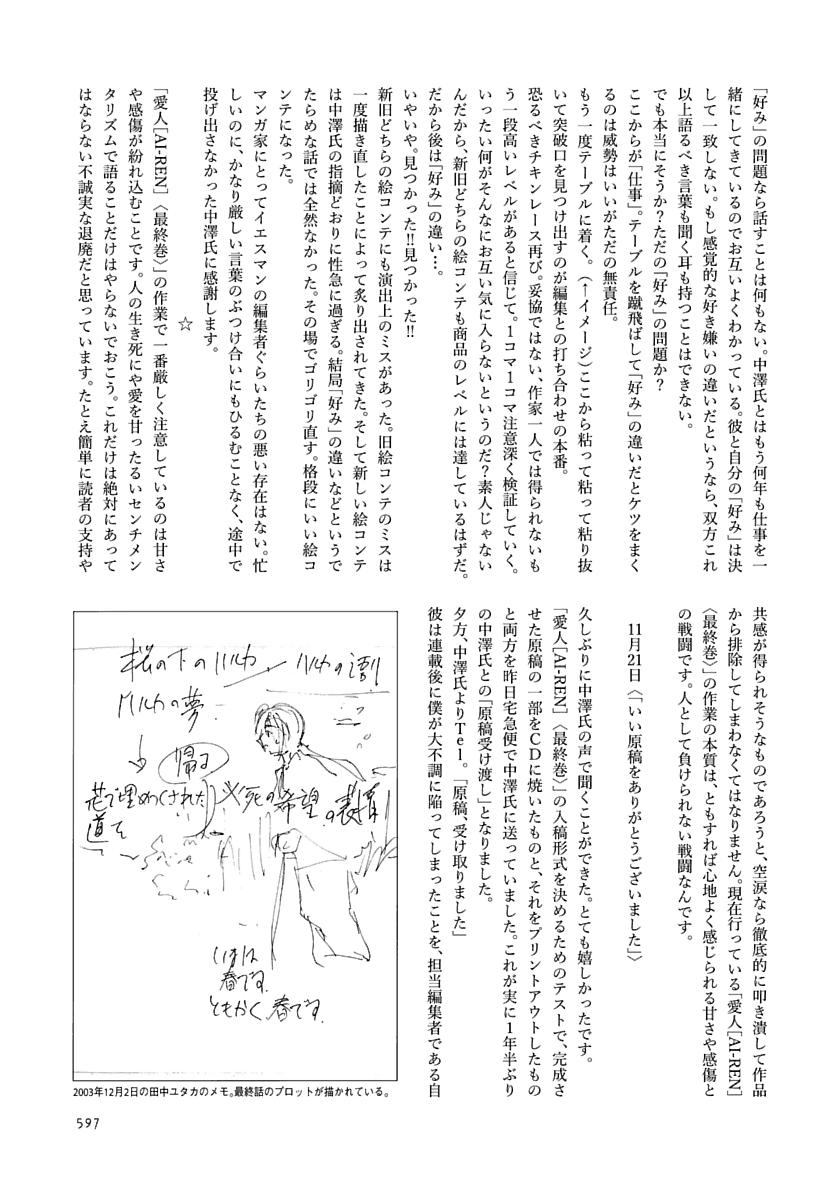 「好み」の問題なら話すことは何もない。中澤氏とはもう何年も仕事を一
緒にしてきているのでお互いよくわかっている。彼と自分の「好み」は決
して一致しない。もし感覚的な好き嫌いの違いだというなら、双方これ
以上語るべき言葉も聞く耳も持つことはできない。
でも本当にそうか？ただの「好み」の問題か？
ここからが「仕事」。テーブルを蹴飛ばして「好み」の違いだとケツをまく
るのは威勢はいいがただの無責任。
もう一度テーブルに着く。（←イメージ）ここから粘って粘って粘り抜
いて突破口を見つけ出すのが編集との打ち合わせの本番。
恐るべきチキンレース再び。妥協ではない、作家一人では得られないも
う一段高いレベルがあると信じて。1コマ1コマ注意深く検証していく。
いったい何がそんなにお互い気に入らないというのだ？素人じゃない
んだから、新旧どちらの絵コンテも商品のレベルには達しているはずだ。
だから後は「好み」の違い…。
いやいや。見つかった!!見つかった!!
新旧どちらの絵コンテにも演出上のミスがあった。旧絵コンテのミスは
一度描き直したことによって炙り出されてきた。そして新しい絵コンテ
は中澤氏の指摘どおりに性急に過ぎる。結局「好み」の違いなどというで
たらめな話では全然なかった。その場でゴリゴリ直す。格段にいい絵コ
ンテになった。
マンガ家にとってイエスマンの編集者ぐらいたちの悪い存在はない。忙
しいのに、かなり厳しい言葉のぶつけ合いにもひるむことなく、途中で
投げ出さなかった中澤氏に感謝します。
☆
「愛人[AI-REN]〈最終巻〉」の作業で一番厳しく注意しているのは甘さ
や感傷が紛れ込むことです。人の生き死にや愛を甘ったるいセンチメン
タリズムで語ることだけはやらないでおこう。これだけは絶対にあって
はならない不誠実な退廃だと思っています。たとえ簡単に読者の支持や
共感が得られそうなものであろうと、空涙なら徹底的に叩き潰して作品
から排除してしまわなくてはなりません。現在行っている「愛人[AI-REN]
〈最終巻〉」の作業の本質は、ともすれば心地よく感じられる甘さや感傷と
の戦闘です。人として負けられない戦闘なんです。
11月21日〈「いい原稿をありがとうございました」〉
久しぶりに中澤氏の声で聞くことができた。とても嬉しかったです。
「愛人[AI-REN]〈最終巻〉」の入稿形式を決めるためのテストで、完成さ
せた原稿の一部をCDに焼いたものと、それをプリントアウトしたもの
と両方を昨日宅急便で中澤氏に送っていました。これが実に1年半ぶり
の中澤氏との「原稿受け渡し」となりました。
夕方、中澤氏よりTel。「原稿、受け取りました」
彼は連載後に僕が大不調に陥ってしまったことを、担当編集者である自
桜の下のハルカ
ハルカの
ハルカの夢
帰る
花で埋めつくされた
道を
死の希望の表情
いまは
春です
ともかく春です
2003年12月2日の田中ユタカのメモ。最終話のプロットが描かれている。
597